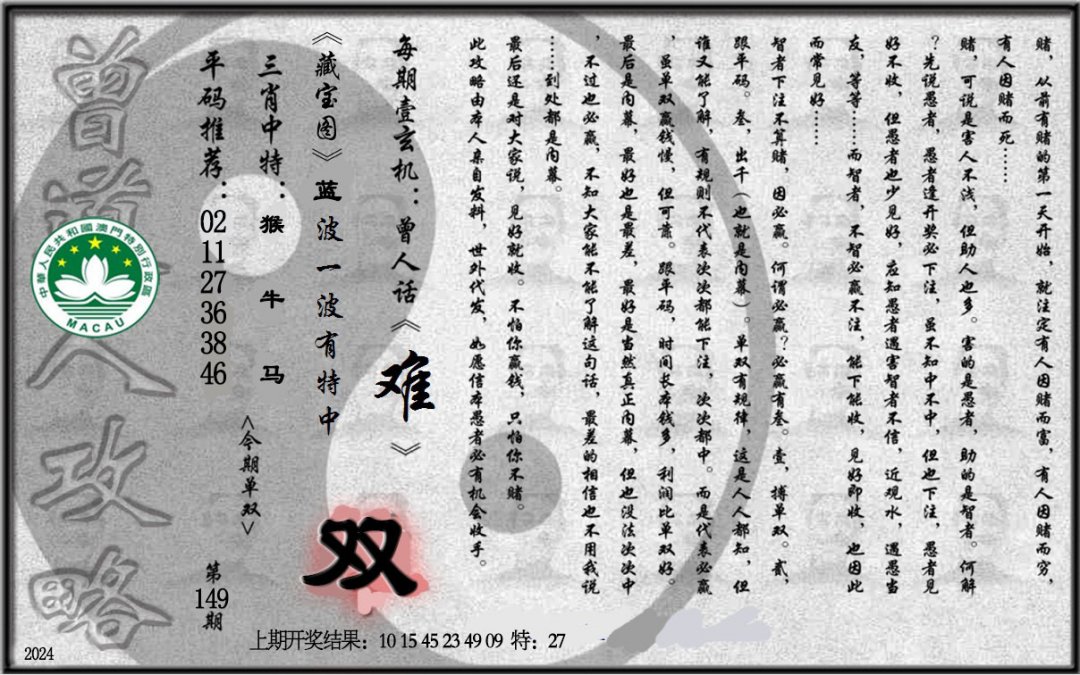 赌，从前有赌的第一天开始，就注定有人因赌而富，有人因赌而穷，
有人因赌而死……
赌，可说是害人不浅，但助人也多。害的是愚者，助的是智者。何解
？先说愚者，愚者逢开奖必下注，虽不知中不中，但也下注，愚者见
好不收，但愚者也少见好，应知愚者遇害智者不信，近观水，遇愚当
友，等等……而智者，不智必赢不注，能下能收，见好即收，也因此
而常见好……
智者下注不算赌，因必赢。何谓必赢？必赢有叁。壹，搏单双。贰，
跟平码。叁，出千（也就是内幕）。单双有规律，这是人人都知，但
谁又能了解，有规则不代表次次都能下注，次次都中。而是代表必赢
，虽单双赢钱慢，但可靠。跟平码，时间长本钱多，利润比单双好。
最后是内幕，最好也是最差，最好是当然真正内幕，但也没法次次中
，不过也必赢，不知大家能不能了解这句话，最差的相信也不用我说
……到处都是内幕。
最后还是对大家说，见好就收。不怕你赢钱，只怕你不赌。
此攻略由本人亲自发料，世外代发，如愿信本愚者必有机会收手。
每期壹玄机：曾人话《难》
《藏宝图》蓝波一波有特中
三肖中特：猴 牛 马
平码推荐：02 11 27 36 38 46
<今期单双>
双
第149期
曾道人攻略
中華人民共和國澳門特別行政區
MACAU
上期开奖结果：10 15 45 23 49 09 特：27
2024